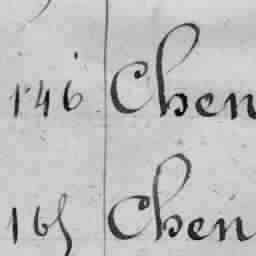 146 Chen
165 Chen